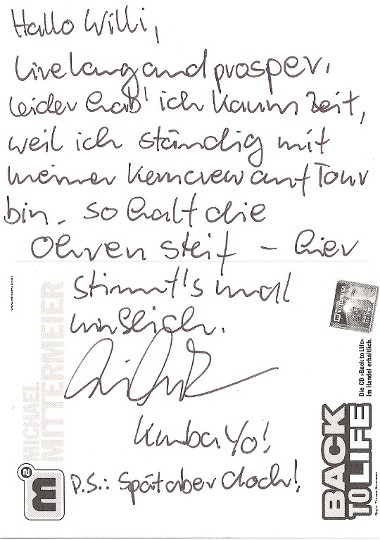 Hallo Willi,
live lang and prosper.
leider hab' ich kaum Zeit,
weil ich ständig mit
meiner Kerncrew auf Tour
bin. So halt die
Ohren steif – hier
stimmt's mal
wirklich.
Kumba Yo!
P.S.: Spät aber doch!
MICHAEL
MITTERMEIER
m2
Die CD »Back to Life«
im Handel erhältlich.
BACK
TO LIFE